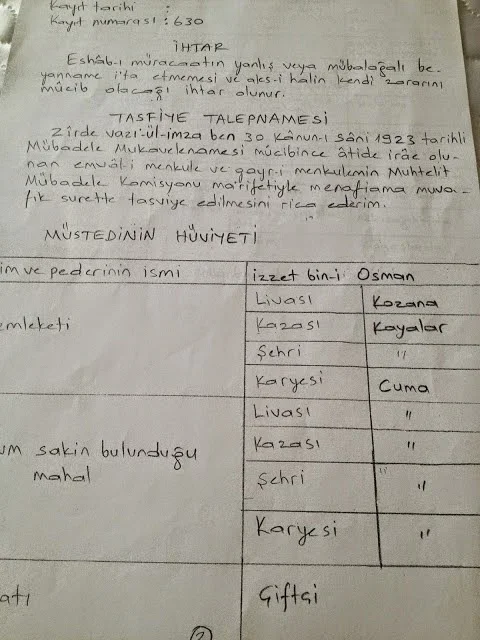 Kayıt tarihi :
Kayıt numarası : 630
İHTAR
Eshâb-ı müracaatın yanlış veya mübalağalı be-
yanname i'ta etmemesi ve aks-i halin kendi zararını
mûcib olacağı ihtar olunur.
TASFİYE TALEPNAMESİ
Zîrde vazı'-ül-imza ben 30 Kânun-ı Sâni 1923 tarihli
Mübadele Mukavelenamesi mûcibince âtide irâe olu-
nan emvâl-i menkule ve gayr-i menkulemin Muhtelit
Mübadele Komisyonu ma'rifetiyle menafiama muva-
fık surette tasviye edilmesini rica ederim.
MÜSTEDİNİN HÜVİYETİ
im ve pederinin ismi izzet bin-i Osman
Livası Kozana
emleketi Kazası Kayalar
Şehri "
Karyesi Cuma
Livası "
um sakin bulunduğu Kazası "
mahal Şehri " "
Karyesi "
atı Çiftçi
2